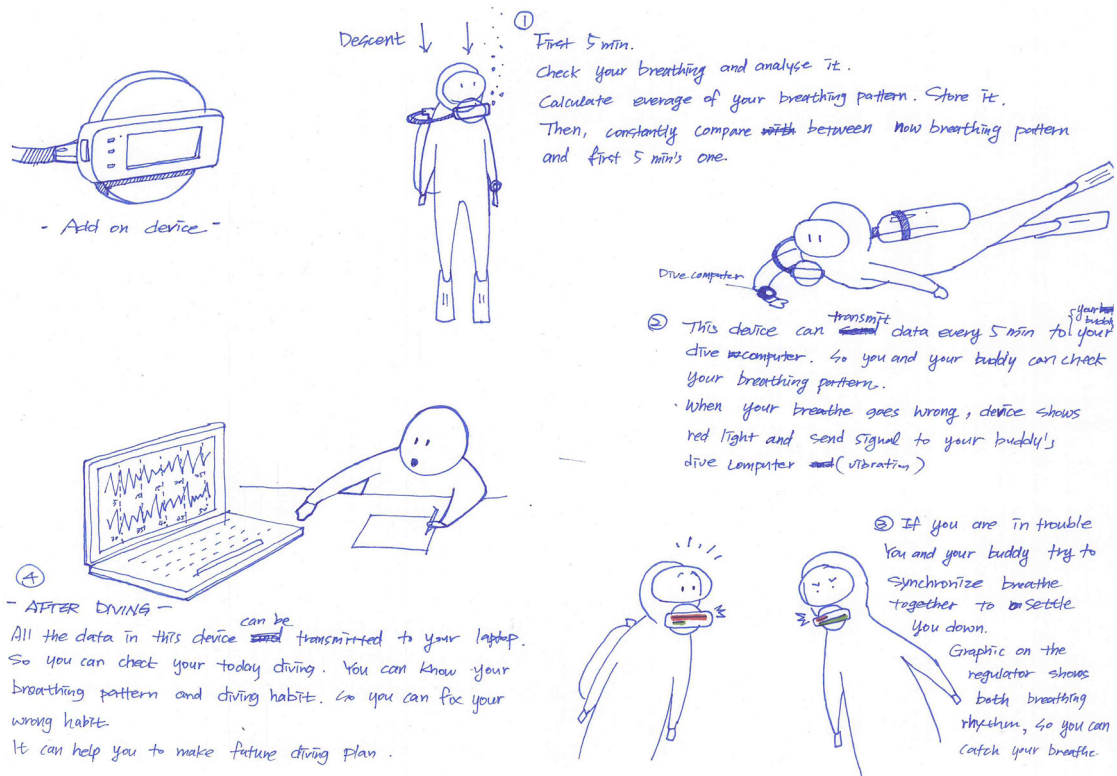 - Add on device -
Descent
①
First 5 min.
Check your breathing and analyse it.
Calculate everage of your breathing pattern. Store it.
Then, constantly compare with between now breathing pattern
and first 5 min's one.
Dive computer
② This device can send transmit data every 5 min to { your buddy your
dive computer. So you and your buddy can check
your breathing pattern.
· When your breathe goes wrong, device shows
red light and send signal to your buddy's
dive computer and (vibration)
③ If you are in trouble
You and your buddy try to
synchronize breathe
together to settle
you down.
Graphic on the
regulator shows
both breathing
rhythm, so you can
catch your breathe.
④
- AFTER DIVING -
All the data in this device can be transmitted to your laptop.
So you can check your today diving. You can know your
breathing pattern and diving habit. So you can fix your
wrong habit.
It can help you to make future diving plan.